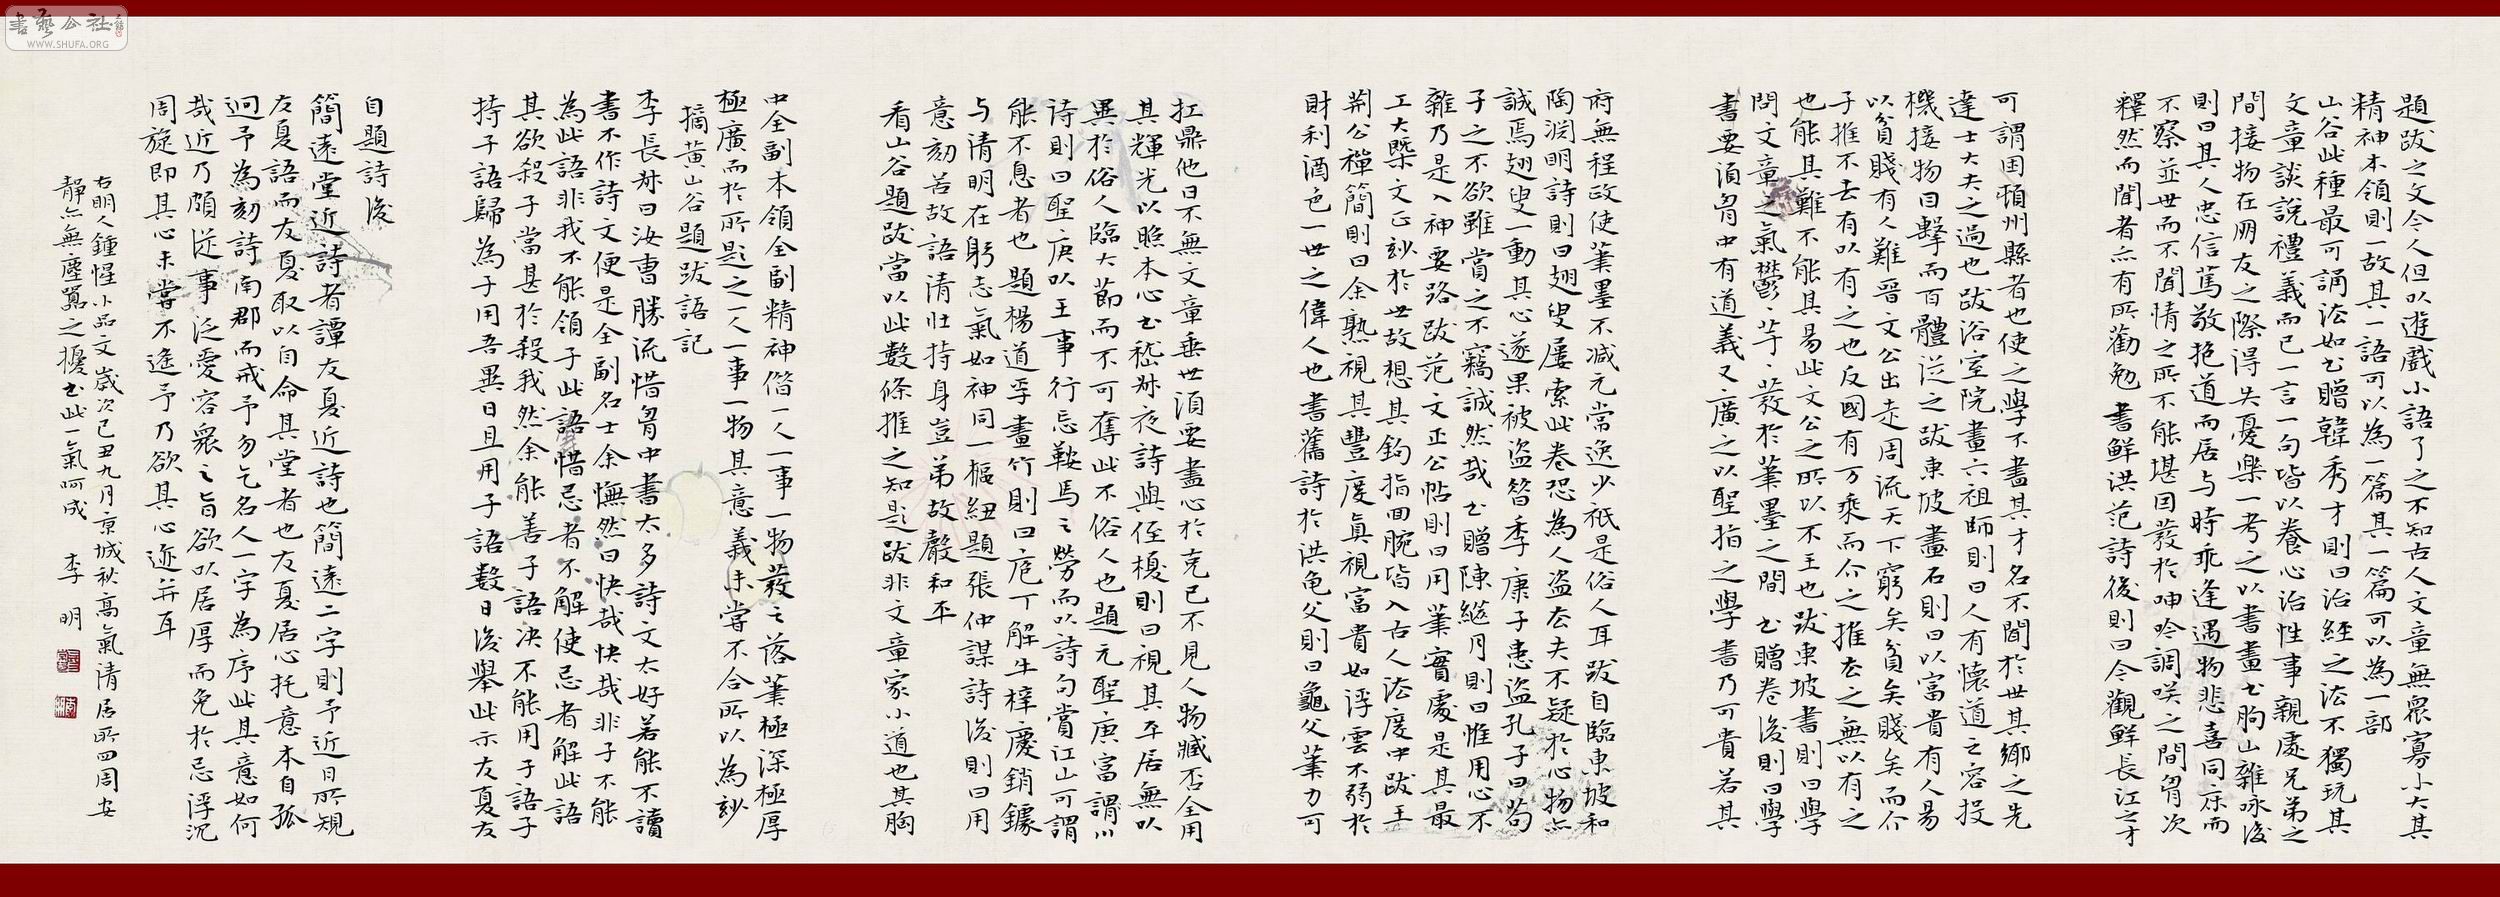 題跋之文今人但以遊戲小語了之不知古人文章無眾寡小大其
精神本領則一故其一語可以為一篇其一篇可以為一部
山谷此種最可誦法如書贈韓秀才則曰治經之法不獨玩其
文章談說禮義而已一言一句皆以養心治性事親處兄弟之
間接物在朋友之際得失憂樂一考之以書畫書朐山雜咏後
則曰其人忠信篤敬抱道而居与時乖逢遇物悲喜同床而
不察並世而不聞情之所不能堪因發於呻吟調笑之間胷次
釋然而聞者亦有所勸勉 書鮮洪范詩後則曰今觀鮮長江之才
可謂困頓州縣者也使之學不盡其才名不聞於世其鄉之先
達士大夫之過也跋浴室院畫六祖師則曰人有懷道之容投
機接物曰擊而百體從之跋東坡畫石則曰以富貴有人易
以貧賤有人難晉文公出走周流天下窮矣貧矣賤矣而介
子推不去有以有之也反國有万乘而介之推去之無以有之
也能其難不能其易此文公之所以不王也跋東坡書則曰學
問文章之氣鬱〻芊〻發於筆墨之間 書贈卷後則曰學
書要湏胷中有道義又廣之以聖指之學書乃可貴若其
府無程政使筆墨不減元常逸少祇是俗人耳跋自臨東坡和
陶淵明詩則曰翅叟屢索此卷恐為人盜去夫不疑於心物亦
誠焉翅叟一動其心遂果被盜昝季康子患盜孔子曰苟
子之不欲雖賞之不竊誠然哉 書贈陳繼月則曰惟用心不
雜乃是入神要路跋范文正公帖則曰用筆實處是其最
工大槩文正玅於世故想其鈎指回腕皆入古人法度中跋王
荊公禪簡則曰余熟視其豐度真視富貴如浮雲不弱於
財利酒色一世之偉人也書舊詩於洪龟父則曰龜父筆力可
扛鼎他日不無文章垂世湏要盡心於克已不見人物臧否全用
其輝光以照本心书嵇叔夜詩與侄榎則曰視其平居無以
異於俗人臨大節而不可奪此不俗人也題元聖庚富謂川
诗則曰聖庚以王事行忘鞍馬之勞而以詩句賞江山可謂
能不息者也題楊道孚畫竹則曰庖丁解牛梓慶銷鐻
与清明在躬志氣如神同一樞紐題張仲謀詩後則曰用
意刻苦故語清壯持身豈弟故聲和平
看山谷題跋當以此數條推之知題跋非文章家小道也其胸
中全副本領全副精神借一人一事一物發之落筆極深極厚
極廣而於所題之一人一事一物其意義未嘗不合所以為玅
摘黃山谷題跋語記
李長叔曰汝曹勝流惜胷中書太多詩文太好若能不讀
書不作詩文便是全副名士余憮然曰快哉快哉非子不能
為此語非我不能領子此語惜忌者不解使忌者解此語
其欲殺子當甚於殺我然余能善子語决不能用子語子
持子語歸為子用吾異日且用子語数日後舉此示友夏友
自題詩後
簡遠堂近詩者譚友夏近詩也簡遠二字則予近日所規
友夏語而友夏取以自命其堂者也友夏居心托意本自孤
迥予為刻詩南郡而戒予勿乞名人一字為序此其意如何
哉近乃頗從事泛愛容眾之旨欲以居厚而免於忌浮沉
周旋即其心未嘗不遙予乃欲其心迹并耳
右明人鍾惺小品文歲次己丑九月京城秋高氣清居所四周安
靜亦無塵囂之擾书此一氣呵成 李明
書藝公社
WWW.SHUFA.ORG